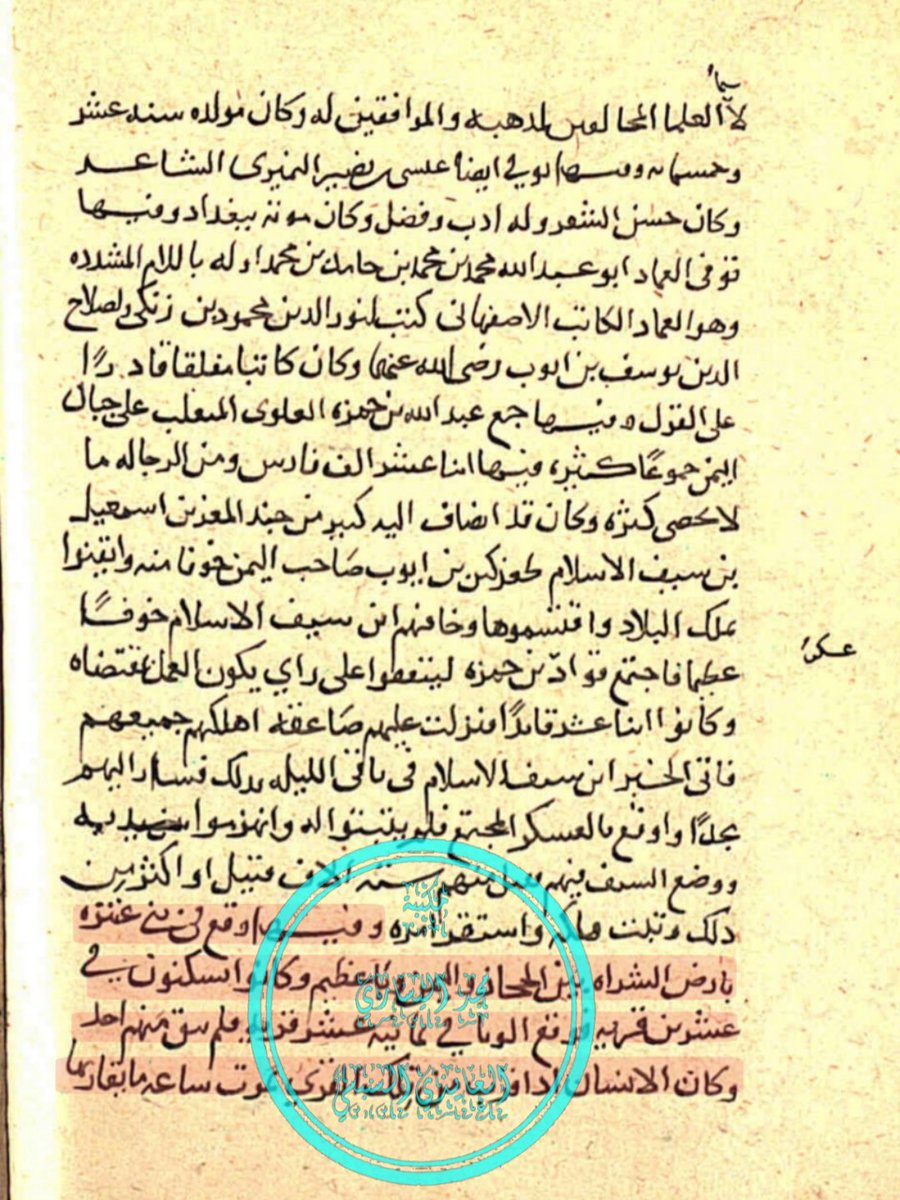 سيما
لا العلما المخالفين لمذهبه والموافقين له وكان مولده سنه عشر
وخمسمايه وفيها توفي ايضا عيسى بن نصير النميرى الشاعر
وكان حسن الشعر وله ادب وفضل وكان موته ببغداد وفيها
توفى العماد ابو عبد الله محمد بن محمد بن حامد بن محمد اوله باللام المشدده
وهو العماد الكاتب الاصفهانى كتب لنور الدين محمود بن زنكى ولصلاح
الدين يوسف بن ايوب رضى الله عنهما وكان كاتبا مفلقا قادرًا
على القول وفيها جمع عبد الله بن حمزه العلوى المتغلب على جبال
اليمن جموعًا كثيره فيها اثنا عشر الف فارس ومن الرجاله ما
لا يحصى كثره وكان قد انضاف اليه كثير من جند المعز بن اسمعيل
بن سيف الاسلام طغزكين بن ايوب صاحب اليمن خوفا منه وايقنوا
بملك البلاد واقتسموها وخافهم ابن سيف الاسلام خوفًا
عظيما فاجتمع قواد بن حمزه ليتفقوا على راي يكون العمل بمقتضاه
وكانوا اثنا عشر قايدًا فنزلت عليهم صاعقه اهلكتهم جميعهم
فاتى الخبر ابن سيف الاسلام فى باقى الليله بذلك فسار اليهم
مجدًا واوقع بالعسكر المجتمع فلم يثبتوا له وانهزموا بين يديه
ووضع السيف فيهم فقتل منهم سته الاف قتيل او اكثر من
ذلك وثبت ملكه واستقر امره وفيها وقع فى بنى عنزه
بارض الشراه بين الحجاز واليمن وبا عظيم وكانوا يسكنون في
عشرين قريه فوقع الوبا في ثمانيه عشر قريه فلم يبق منهم احد
وكان الانسان اذا قرب من تلك القرى يموت ساعه ما يقاربها
عسكر
مكتبة
محمد
العامري